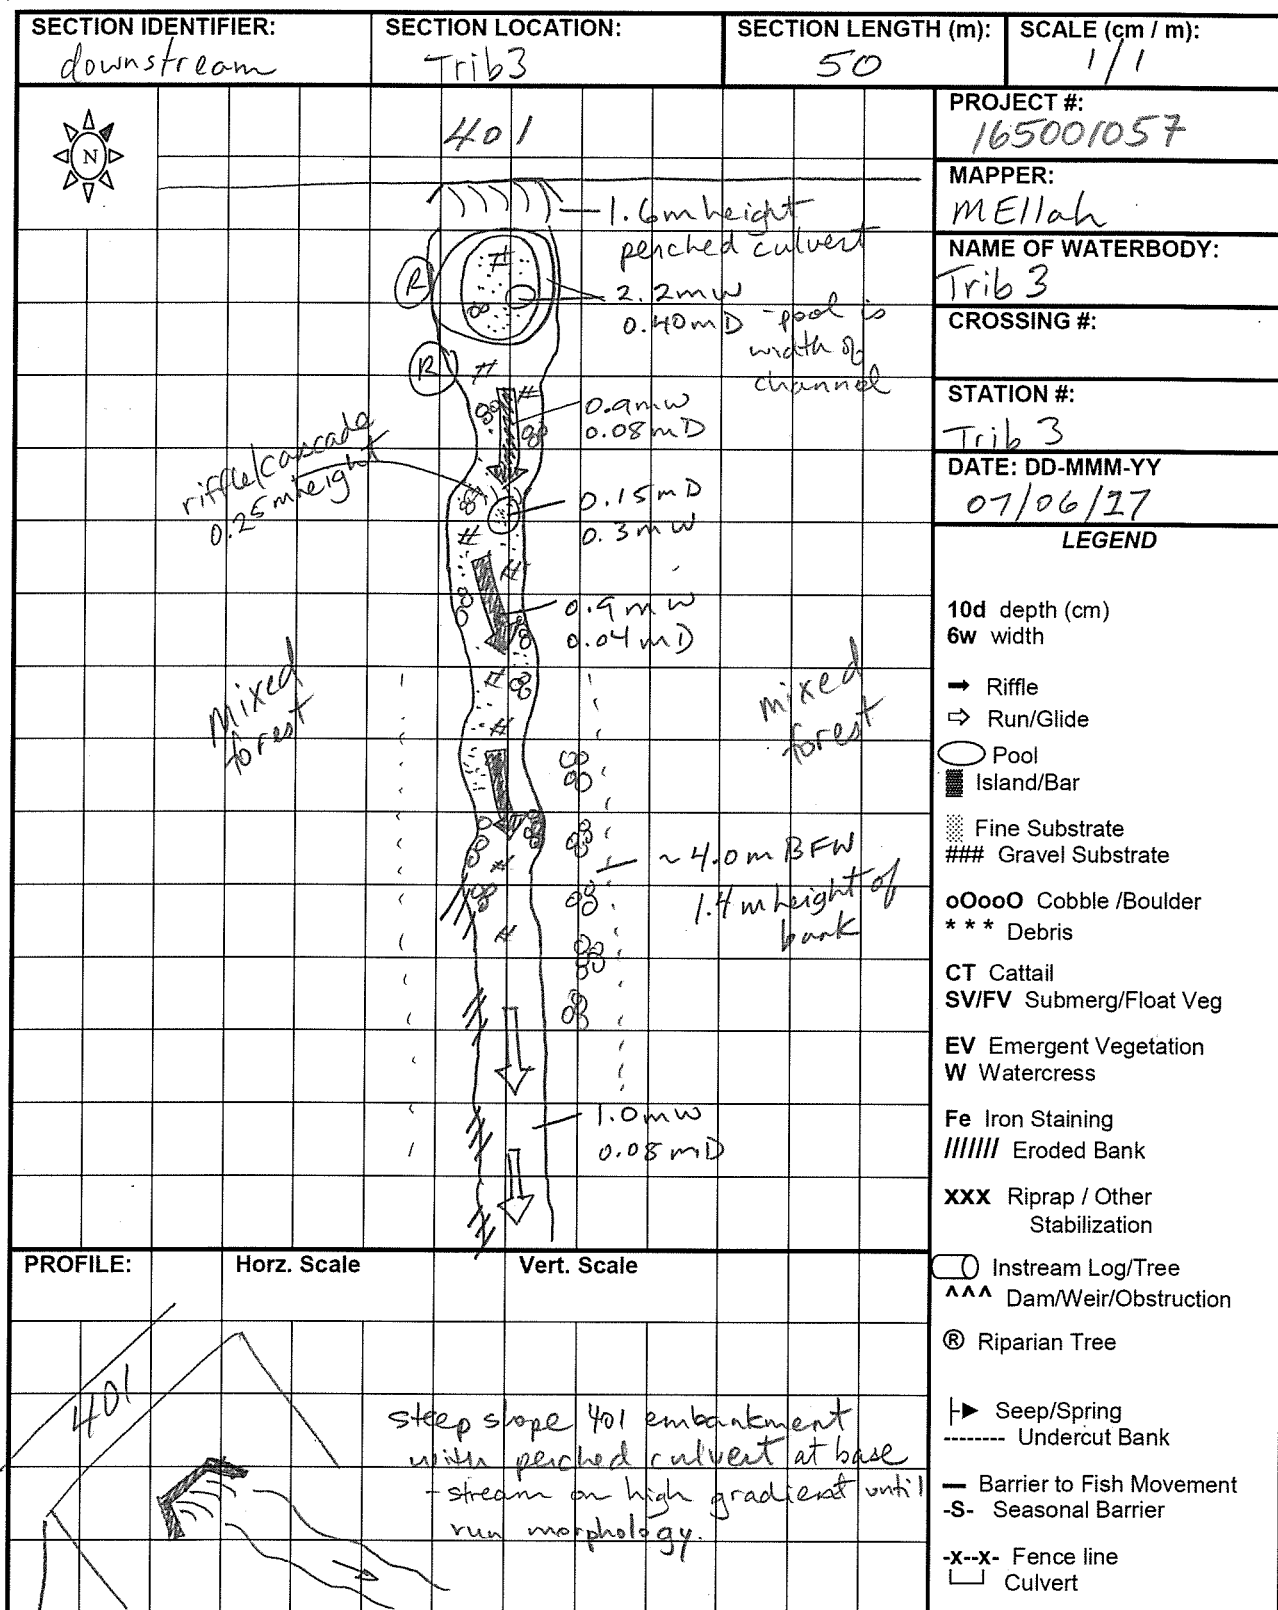 SECTION IDENTIFIER:
downstream
SECTION LOCATION:
Trib3
SECTION LENGTH (m):
50
SCALE (cm / m):
1/1
N
401
1.6m height
perched culvert
R
2.2mW
0.40mD - pool is
width of
channel
R
0.9mW
0.08mD
riffle/cascade
0.25m height
0.15mD
0.3mW
0.9mW
0.04mD
mixed
forest
mixed
forest
~4.0m BFW
1.4m height of
bank
1.0mW
0.08mD
PROJECT #:
165001057
MAPPER:
MEllah
NAME OF WATERBODY:
Trib 3
CROSSING #:
STATION #:
Trib 3
DATE: DD-MMM-YY
07/06/17
LEGEND
10d depth (cm)
6w width
Riffle
Run/Glide
Pool
Island/Bar
Fine Substrate
### Gravel Substrate
oOooO Cobble /Boulder
* * * Debris
CT Cattail
SV/FV Submerg/Float Veg
EV Emergent Vegetation
W Watercress
Fe Iron Staining
/////// Eroded Bank
XXX Riprap / Other
Stabilization
Instream Log/Tree
^^^ Dam/Weir/Obstruction
® Riparian Tree
Seep/Spring
-------- Undercut Bank
Barrier to Fish Movement
-S- Seasonal Barrier
-x--x- Fence line
Culvert
PROFILE:
Horz. Scale
Vert. Scale
401
steep slope 401 embankment
with perched culvert at base
- stream on high gradient until
run morphology.